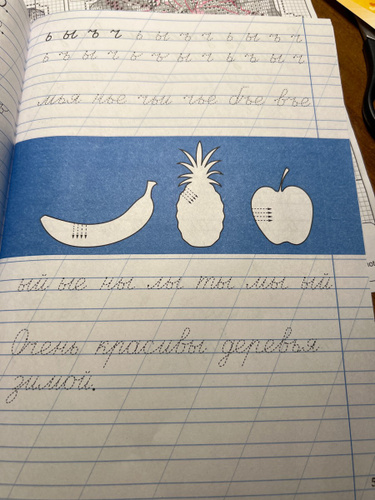 ь ы ъ ч ь ы ъ ч ь ы ъ ч
ь ъ ы ч ь ъ ы ч ь ъ ы ч
мья нье чьи чье бъе въе
ый ые ны лы ты мы ый
Очень красивы деревья
зимой.